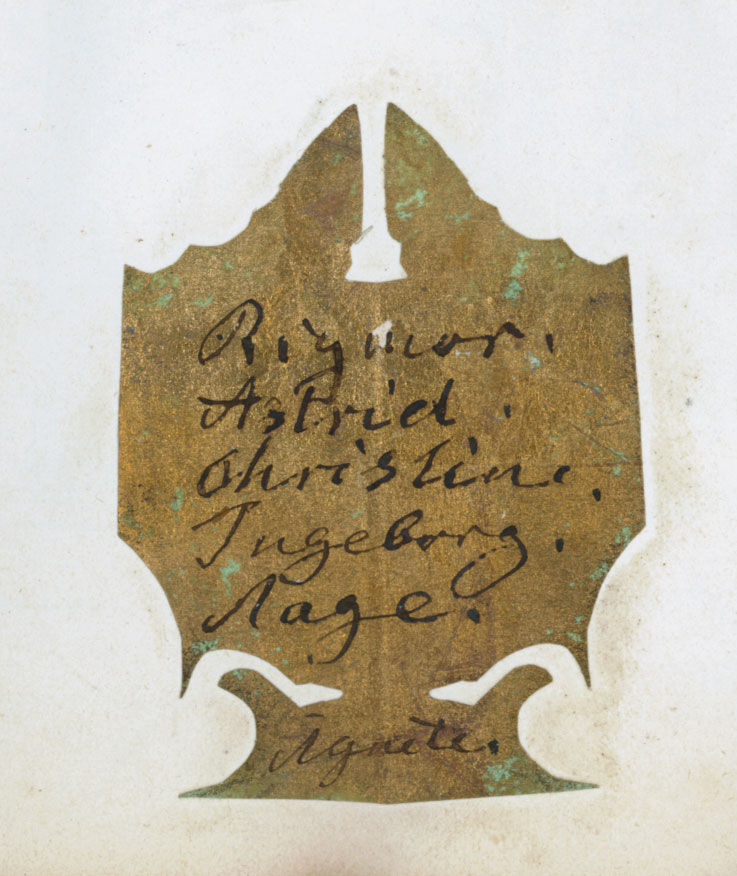 Rigmor.
Astrid.
Christine.
Ingeborg.
Aage.
Agnete.